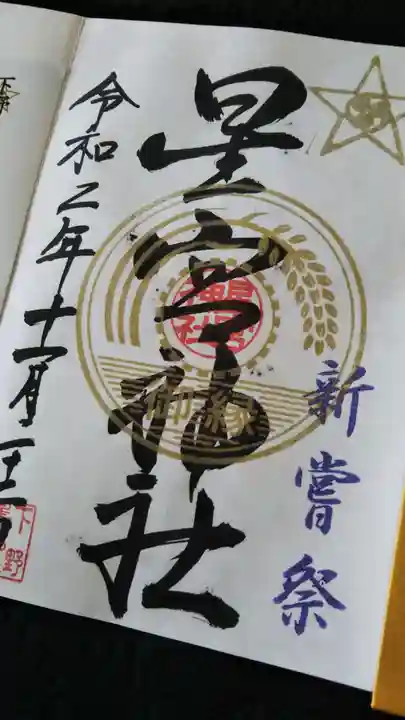 新嘗祭
星宮神社
御縁
令和二年十一月二十三日
下野